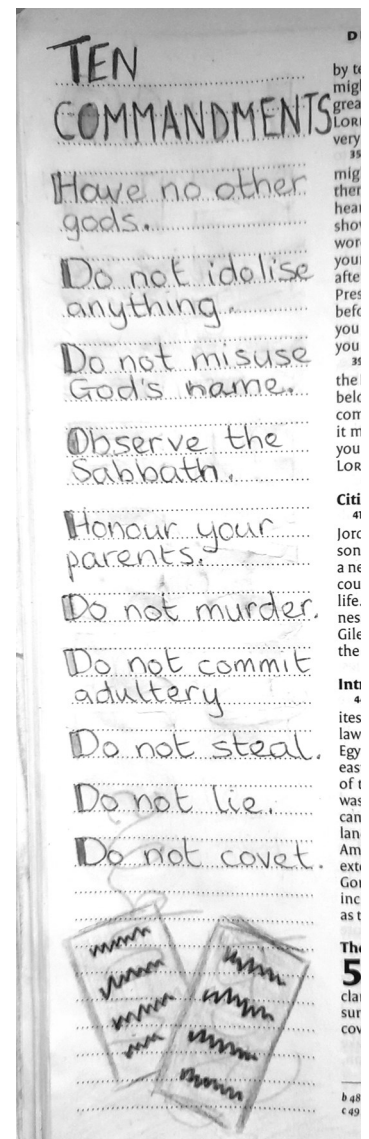 TEN
COMMANDMENTS
Have no other
gods.
Do not idolise
anything.
Do not misuse
God's name.
Observe the
Sabbath.
Honour your
parents.
Do not murder.
Do not commit
adultery
Do not steal.
Do not lie.
Do not covet.
D
by te
very
35
mig
word
your
afte
Pres
befo
you
you
39
the
belo
com
it m
you
LOR
Citi
41
Jord
son
a ne
cou
life.
nes
Gile
the
Int
ites
law
Egy
eas
of t
was
can
lan
Am
exte
Gor
inc
as t
The
5
cla
sur
cov
b 48
c 49